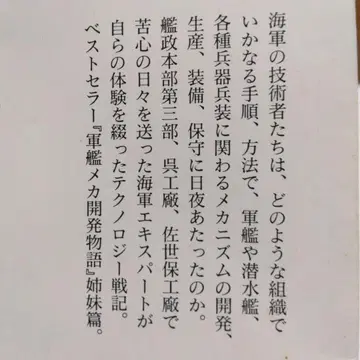 海軍の技術者たちは、どのような組織で
いかなる手順、方法で、軍艦や潜水艦、
各種兵器兵装に関わるメカニズムの開発、
生産、装備、保守に日夜あたったのか。
艦政本部第三部、呉工廠、佐世保工廠で
苦心の日々を送った海軍エキスパートが
自らの体験を綴ったテクノロジー戦記。
ベストセラー『軍艦メカ開発物語』姉妹篇。